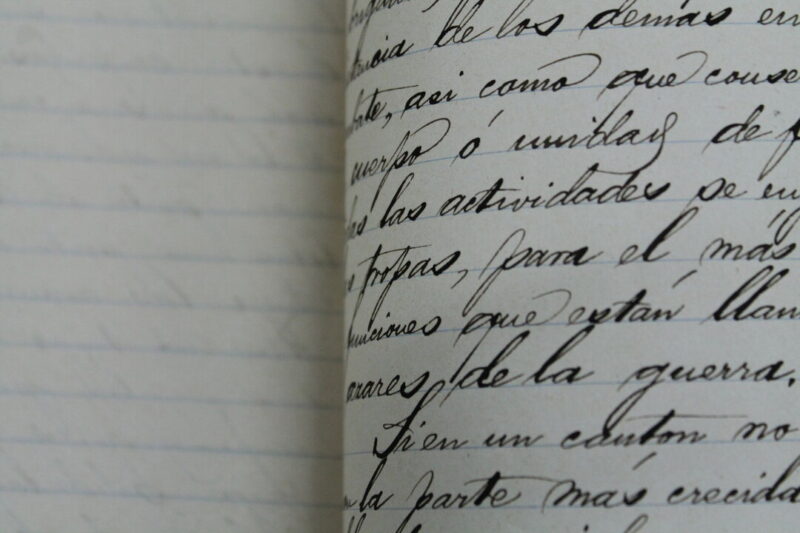 tencia de los demás en
bate, asi como que conse
cuerpo ó unidad de f
las las actividades se en
s tropas, para el más
funciones que están llam
azares de la guerra.
Si en un cantón no
la parte más crecida